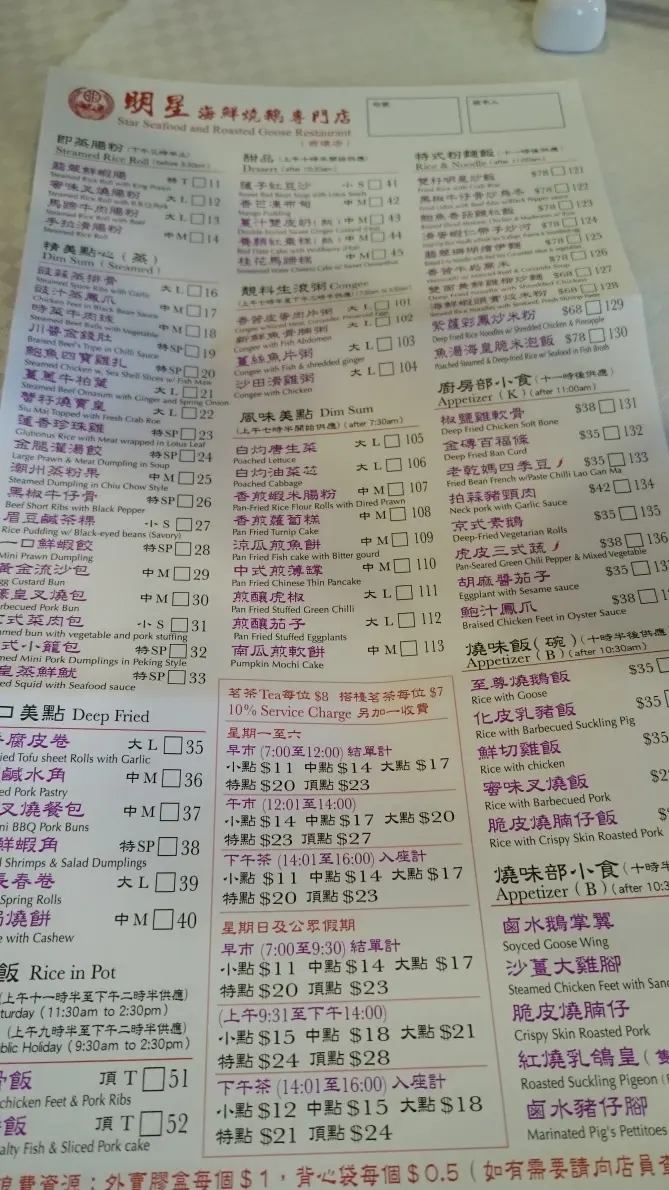 明星 海鮮燒鵝專門店
Star Seafood and Roasted Goose Restaurant
即蒸腸粉
Steamed Rice Roll (before 5:30pm)
特 T 11
Steamed Rice Roll with King Prawn
蜜味叉燒腸粉 大 L 12
Steamed Rice Roll with B.B.Q Pork
大 L 13
Steamed Rice Roll with Beef
手拉滑腸粉 中 M 14
Steamed Rice Roll
精美點心 (蒸)
Dim Sum ( Steamed )
豉蒜蒸排骨 大 L 16
Steamed Spare Ribs with Garlic
豉汁蒸鳳爪 中 M 17
Chicken Feet in Black Bean Sauce
時菜牛肉球 中 M 18
Steamed Beef Balls with Vegetable
特SP 19
Braised Beef's Tripe in Chilli Sauce
鮑魚四寶雞扎 特SP 20
Steamed Chicken w. Sea Shell Slices w/ Fish Maw
薑蔥牛柏葉 大 L 21
Steamed Beef Omasum with Ginger and Spring Onion
蟹籽燒賣皇 大 L 22
Siu Mai Topped with Fresh Crab Roe
蓮香珍珠雞 特SP 23
Glutionus Rice with Meat wrapped in Lotus Leaf
金腿灌湯餃 特SP 24
Large Prawn & Meat Dumpling in Soup
潮州蒸粉果 中 M 25
Steamed Dumpling in Chiu Chow Style
黑椒牛仔骨 特SP 26
Beef Short Ribs with Black Pepper
眉豆鹹茶粿 小 S 27
Rice Pudding w/ Black-eyed beans (Savory)
一口鮮蝦餃 特SP 28
Mini Prawn Dumpling
黃金流沙包 中 M 29
gg Custard Bun
皇叉燒包 中 M 30
rbecued Pork Bun
式菜肉包 小 S 31
med bun with vegetable and pork stuffing
式小籠包 特SP 32
med Mini Pork Dumplings in Peking Style
皇蒸鮮魷 特SP 33
ed Squid with Seafood sauce
口美點 Deep Fried
腐皮卷 大 L 35
ied Tofu sheet Rolls with Garlic
鹹水角 中 M 36
ed Pork Pastry
叉燒餐包 中 M 37
ni BBQ Pork Buns
鮮蝦角 特SP 38
d Shrimps & Salad Dumplings
長春卷 大 L 39
Spring Rolls
燒餅 中 M 40
e with Cashew
飯 Rice in Pot
(上午十一時半至下午二時半供應)
turday (11:30am to 2:30pm)
(上午九時半至下午二時半供應)
blic Holiday (9:30am to 2:30pm)
骨飯 頂 T 51
chicken Feet & Pork Ribs
飯 頂 T 52
alty Fish & Sliced Pork cake
甜品 (上午十時半開始供應)
Dessert (after 10:30am)
蓮子紅豆沙 小 S 41
香芒凍布甸 中 M 42
Mango Pudding
薑汁雙皮奶(熱) 中 M 43
中 M 44
桂花馬蹄糕 中 M 45
靚料生滾粥 Congee
大 L 101
大 L 102
Congee with Fish Abdomen
薑絲魚片粥 大 L 103
Congee with Fish & shredded ginger
沙田滑雞粥 大 L 104
Congee with Chicken
風味美點 Dim Sum
(上午七時半開始供應) (after 7:30am)
白灼唐生菜 大 L 105
Poached Lettuce
白灼油菜芯 大 L 106
Poached Cabbage
香煎蝦米腸粉 中 M 107
Pan-Fried Rice Flour Rolls with Dired Prawn
香煎蘿蔔糕 中 M 108
Pan Fried Turnip Cake
涼瓜煎魚餅 中 M 109
Pan Fried Fish cake with Bitter gourd
中式煎薄罉 中 M 110
Pan Fried Chinese Thin Pancake
煎釀虎椒 大 L 111
Pan Fried Stuffed Green Chilli
煎釀茄子 大 L 112
Pan Fried Stuffed Eggplants
南瓜煎軟餅 中 M 113
Pumpkin Mochi Cake
茗茶Tea每位 $8 搭檯茗茶每位 $7
10% Service Charge 另加一收費
星期一至六
早市 (7:00至12:00) 結單計
小點 $11 中點 $14 大點 $17
特點 $20 頂點 $23
午市 (12:01至14:00)
小點 $14 中點 $17 大點 $20
特點 $23 頂點 $27
下午茶 (14:01至16:00) 入座計
小點 $11 中點 $14 大點 $17
特點 $20 頂點 $23
星期日及公眾假期
早市 (7:00至9:30) 結單計
小點 $11 中點 $14 大點 $17
特點 $20 頂點 $23
(上午9:31至下午14:00)
小點 $15 中點 $18 大點 $21
特點 $24 頂點 $28
下午茶 (14:01至16:00) 入座計
小點 $12 中點 $15 大點 $18
特點 $21 頂點 $24
特式粉麵飯 (十一時後供應)
Rice & Noodle (after 11:00am)
$78 121
$78 122
$78 123
$78 124
$78 125
$78 126
$68 127
$68 128
紫蘿彩鳳炒米粉 $68 129
Deep Fried Rice Noodles w/ Shredded Chicken & Pineapple
魚湯海皇脆米泡飯 $78 130
Poached Steamed & Deep-fried Rice w/ Seafood in Fish Broth
廚房部小食 (十一時後供應)
Appetizer ( K ) (after 11:00am)
椒鹽雞軟骨 $38 131
Deep Fried Chicken Soft Bone
金磚百福條 $35 132
Deep Fried Ban Curd
老乾媽四季豆 $35 133
Fried Bean French w/Paste Chilli Lao Gan Ma
拍蒜豬頸肉 $42 134
Neck pork with Garlic Sauce
京式素鵝 $35 135
Deep-Fried Vegetarian Rolls
虎皮三式蔬 $38 136
Pan-Seared Green Chili Pepper & Mixed Vegetable
胡麻醬茄子 $35 13
Eggplant with Sesame sauce
鮑汁鳳爪 $38
Braised Chicken Feet in Oyster Sauce
燒味飯(碗) (十時半後供應
Appetizer ( B ) (after 10:30am)
至尊燒鵝飯 $35
Rice with Goose
化皮乳豬飯 $35
Rice with Barbecued Suckling Pig
鮮切雞飯 $35
Rice with chicken
蜜味叉燒飯 $2
Rice with Barbecued Pork
脆皮燒腩仔飯 $
Rice with Crispy Skin Roasted Pork
燒味部小食 (十時半
Appetizer ( B ) (after 10:3
鹵水鵝掌翼
Soyced Goose Wing
沙薑大雞腳
Steamed Chicken Feet with San
脆皮燒腩仔
Crispy Skin Roasted Pork
紅燒乳鴿皇 (
Roasted Suckling Pigeon (
鹵水豬仔腳
Marinated Pig's Pettitoes
浪費資源：外賣膠盒每個 $ 1，背心袋每個 $ 0.5 ( 如有需要請向店員查